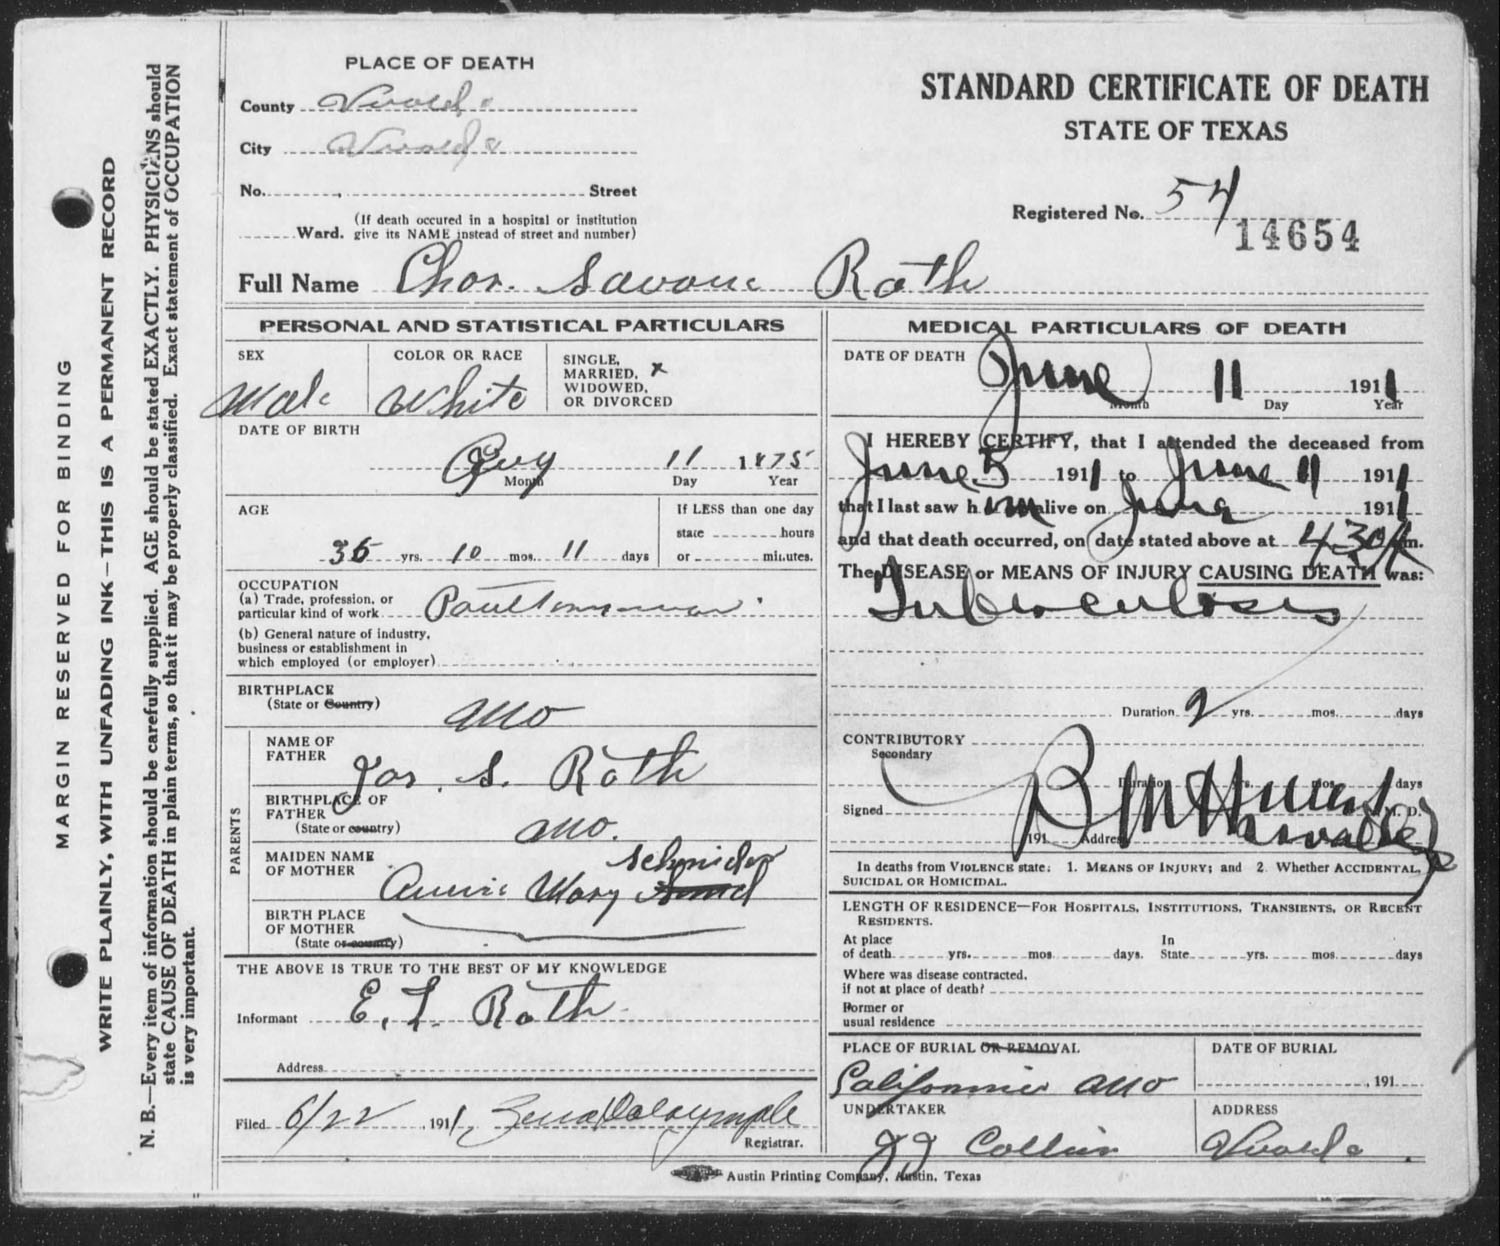 MARGIN RESERVED FOR BINDING
WRITE PLAINLY, WITH UNFADING INK—THIS IS A PERMANENT RECORD
N. B.—Every item of information should be carefully supplied. AGE should be stated EXACTLY. PHYSICIANS should
state CAUSE OF DEATH in plain terms, so that it may be properly classified. Exact statement of OCCUPATION
is very important.
PLACE OF DEATH
County Uvalde
City Uvalde
No. Street
Ward. (If death occured in a hospital or institution
give its NAME instead of street and number)
STANDARD CERTIFICATE OF DEATH
STATE OF TEXAS
Registered No. 54
14654
Full Name Chas. Roth
PERSONAL AND STATISTICAL PARTICULARS
SEX
Male
COLOR OR RACE
White
SINGLE,
MARRIED, x
WIDOWED,
OR DIVORCED
DATE OF BIRTH
11 1875
Month Day Year
AGE
35 yrs. 10 mos. 11 days
If LESS than one day
state hours
or minutes.
OCCUPATION
(a) Trade, profession, or
particular kind of work
(b) General nature of industry,
business or establishment in
which employed (or employer)
BIRTHPLACE
(State or Country)
Mo
PARENTS
NAME OF
FATHER
Jos. S. Roth
BIRTHPLACE OF
FATHER
(State or country)
Mo.
MAIDEN NAME
OF MOTHER
Schnider
Annie Mary
BIRTH PLACE
OF MOTHER
(State or country)
THE ABOVE IS TRUE TO THE BEST OF MY KNOWLEDGE
Informant E. L. Roth
Address
Filed 6/22, 1911, Dalrymple
Registrar.
MEDICAL PARTICULARS OF DEATH
DATE OF DEATH
June 11 1911
Month Day Year
I HEREBY CERTIFY, that I attended the deceased from
June 5 1911 to June 11 1911
that I last saw him alive on June 1911
and that death occurred, on date stated above at 4 30 A m.
The DISEASE or MEANS OF INJURY CAUSING DEATH was:
Tuberculosis
Duration 2 yrs. mos. days
CONTRIBUTORY
Secondary
Duration yrs. mos. days
Signed B M Hines M. D.
191 Address Uvalde
In deaths from VIOLENCE state: 1. MEANS OF INJURY; and 2. Whether ACCIDENTAL,
SUICIDAL OR HOMICIDAL.
LENGTH OF RESIDENCE—FOR HOSPITALS, INSTITUTIONS, TRANSIENTS, OR RECENT
RESIDENTS.
At place
of death yrs. mos. days.
In
State yrs. mos. days
Where was disease contracted,
if not at place of death?
Former or
usual residence
PLACE OF BURIAL OR REMOVAL
California Mo
DATE OF BURIAL
, 191
UNDERTAKER
J J Collier
ADDRESS
Uvalde
Austin Printing Company, Austin, Texas